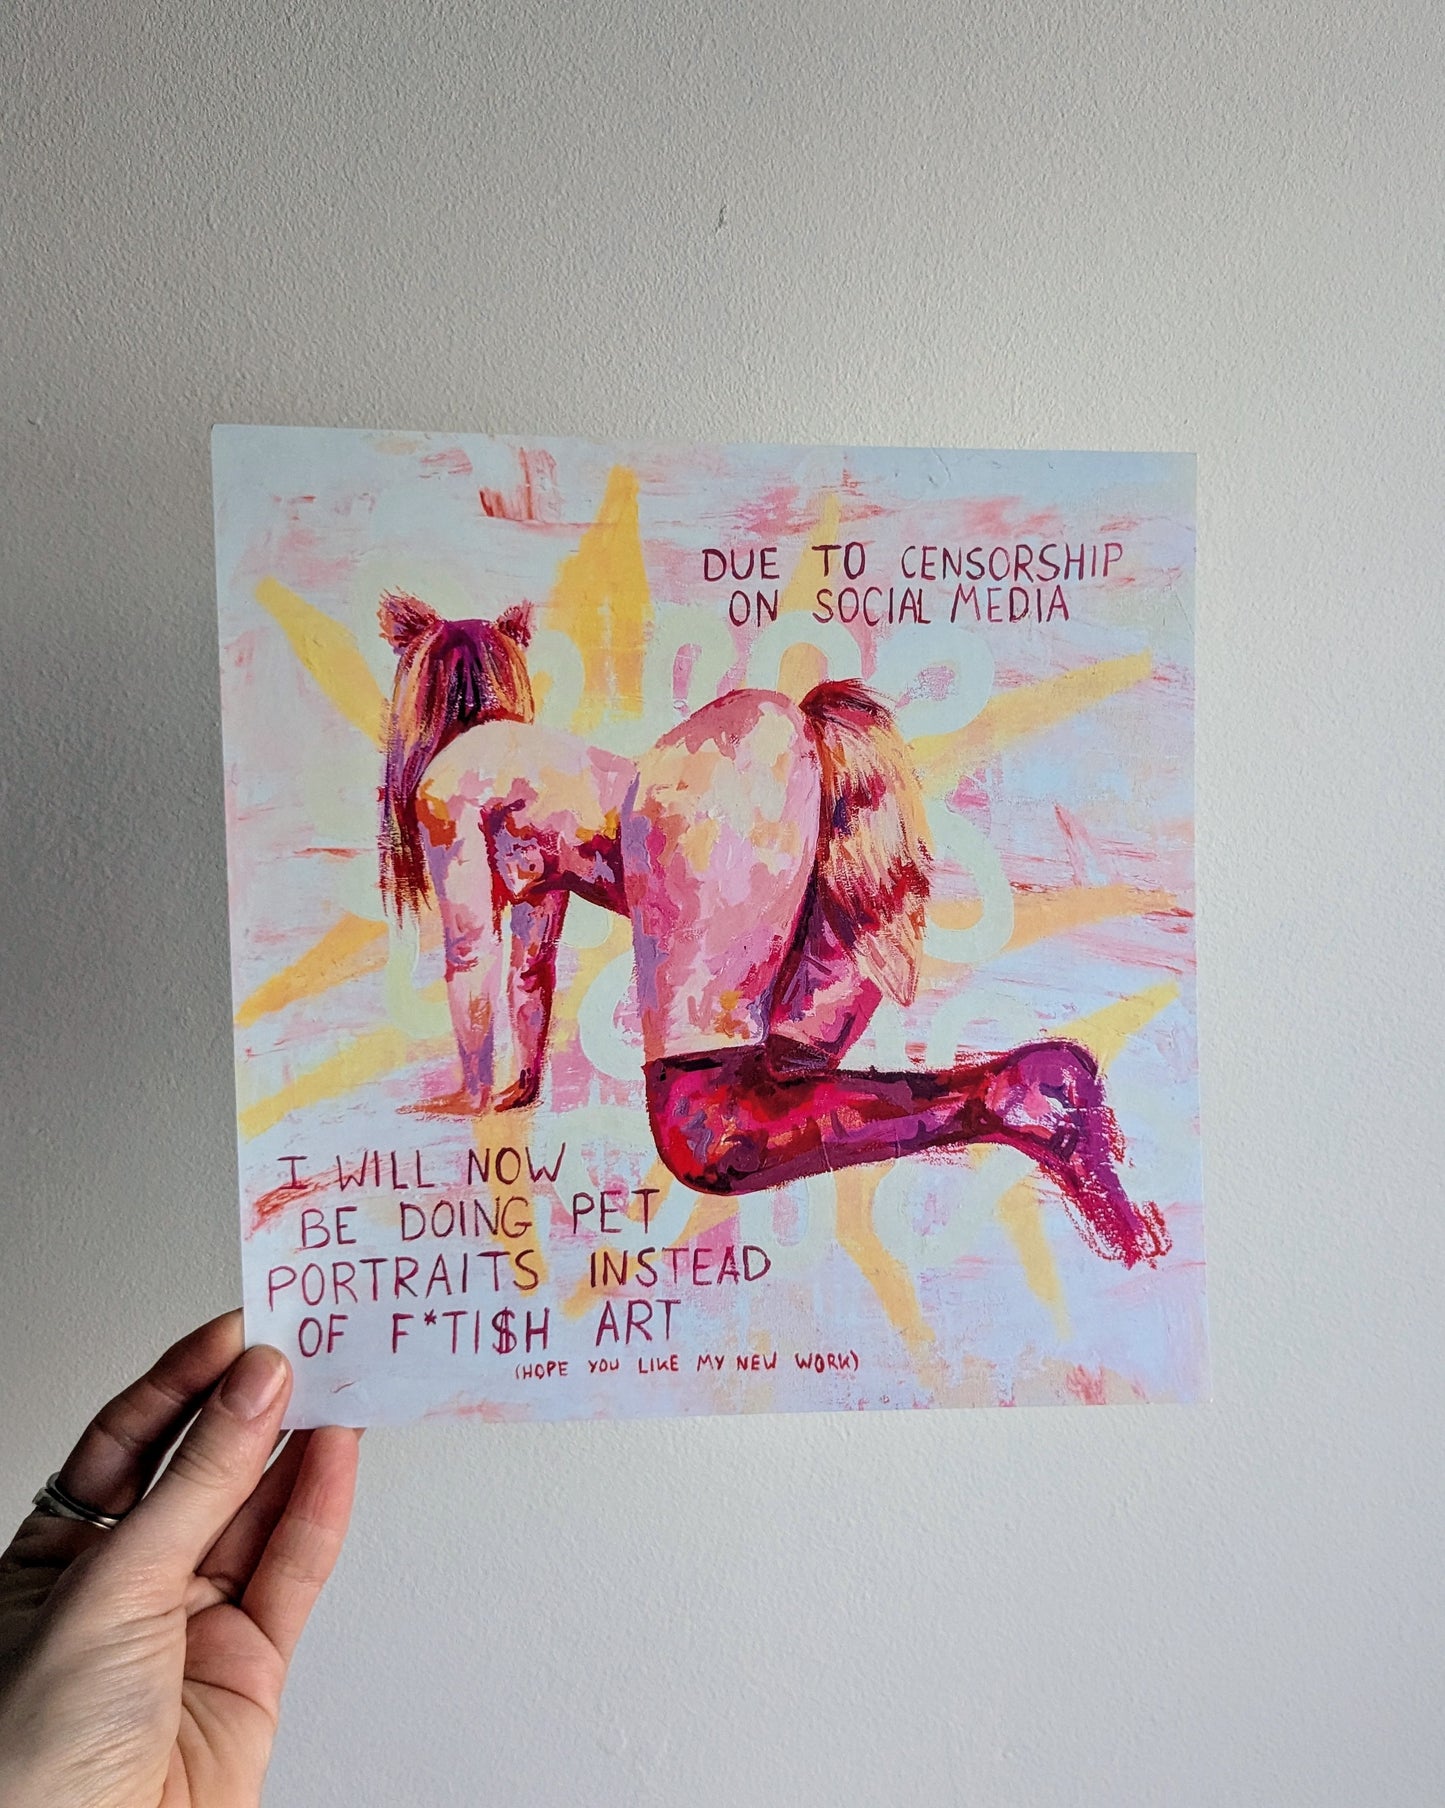 DUE TO CENSORSHIP
ON SOCIAL MEDIA
I WILL NOW
BE DOING PET
PORTRAITS INSTEAD
OF F*TI$H ART
(HOPE YOU LIKE MY NEW WORK)